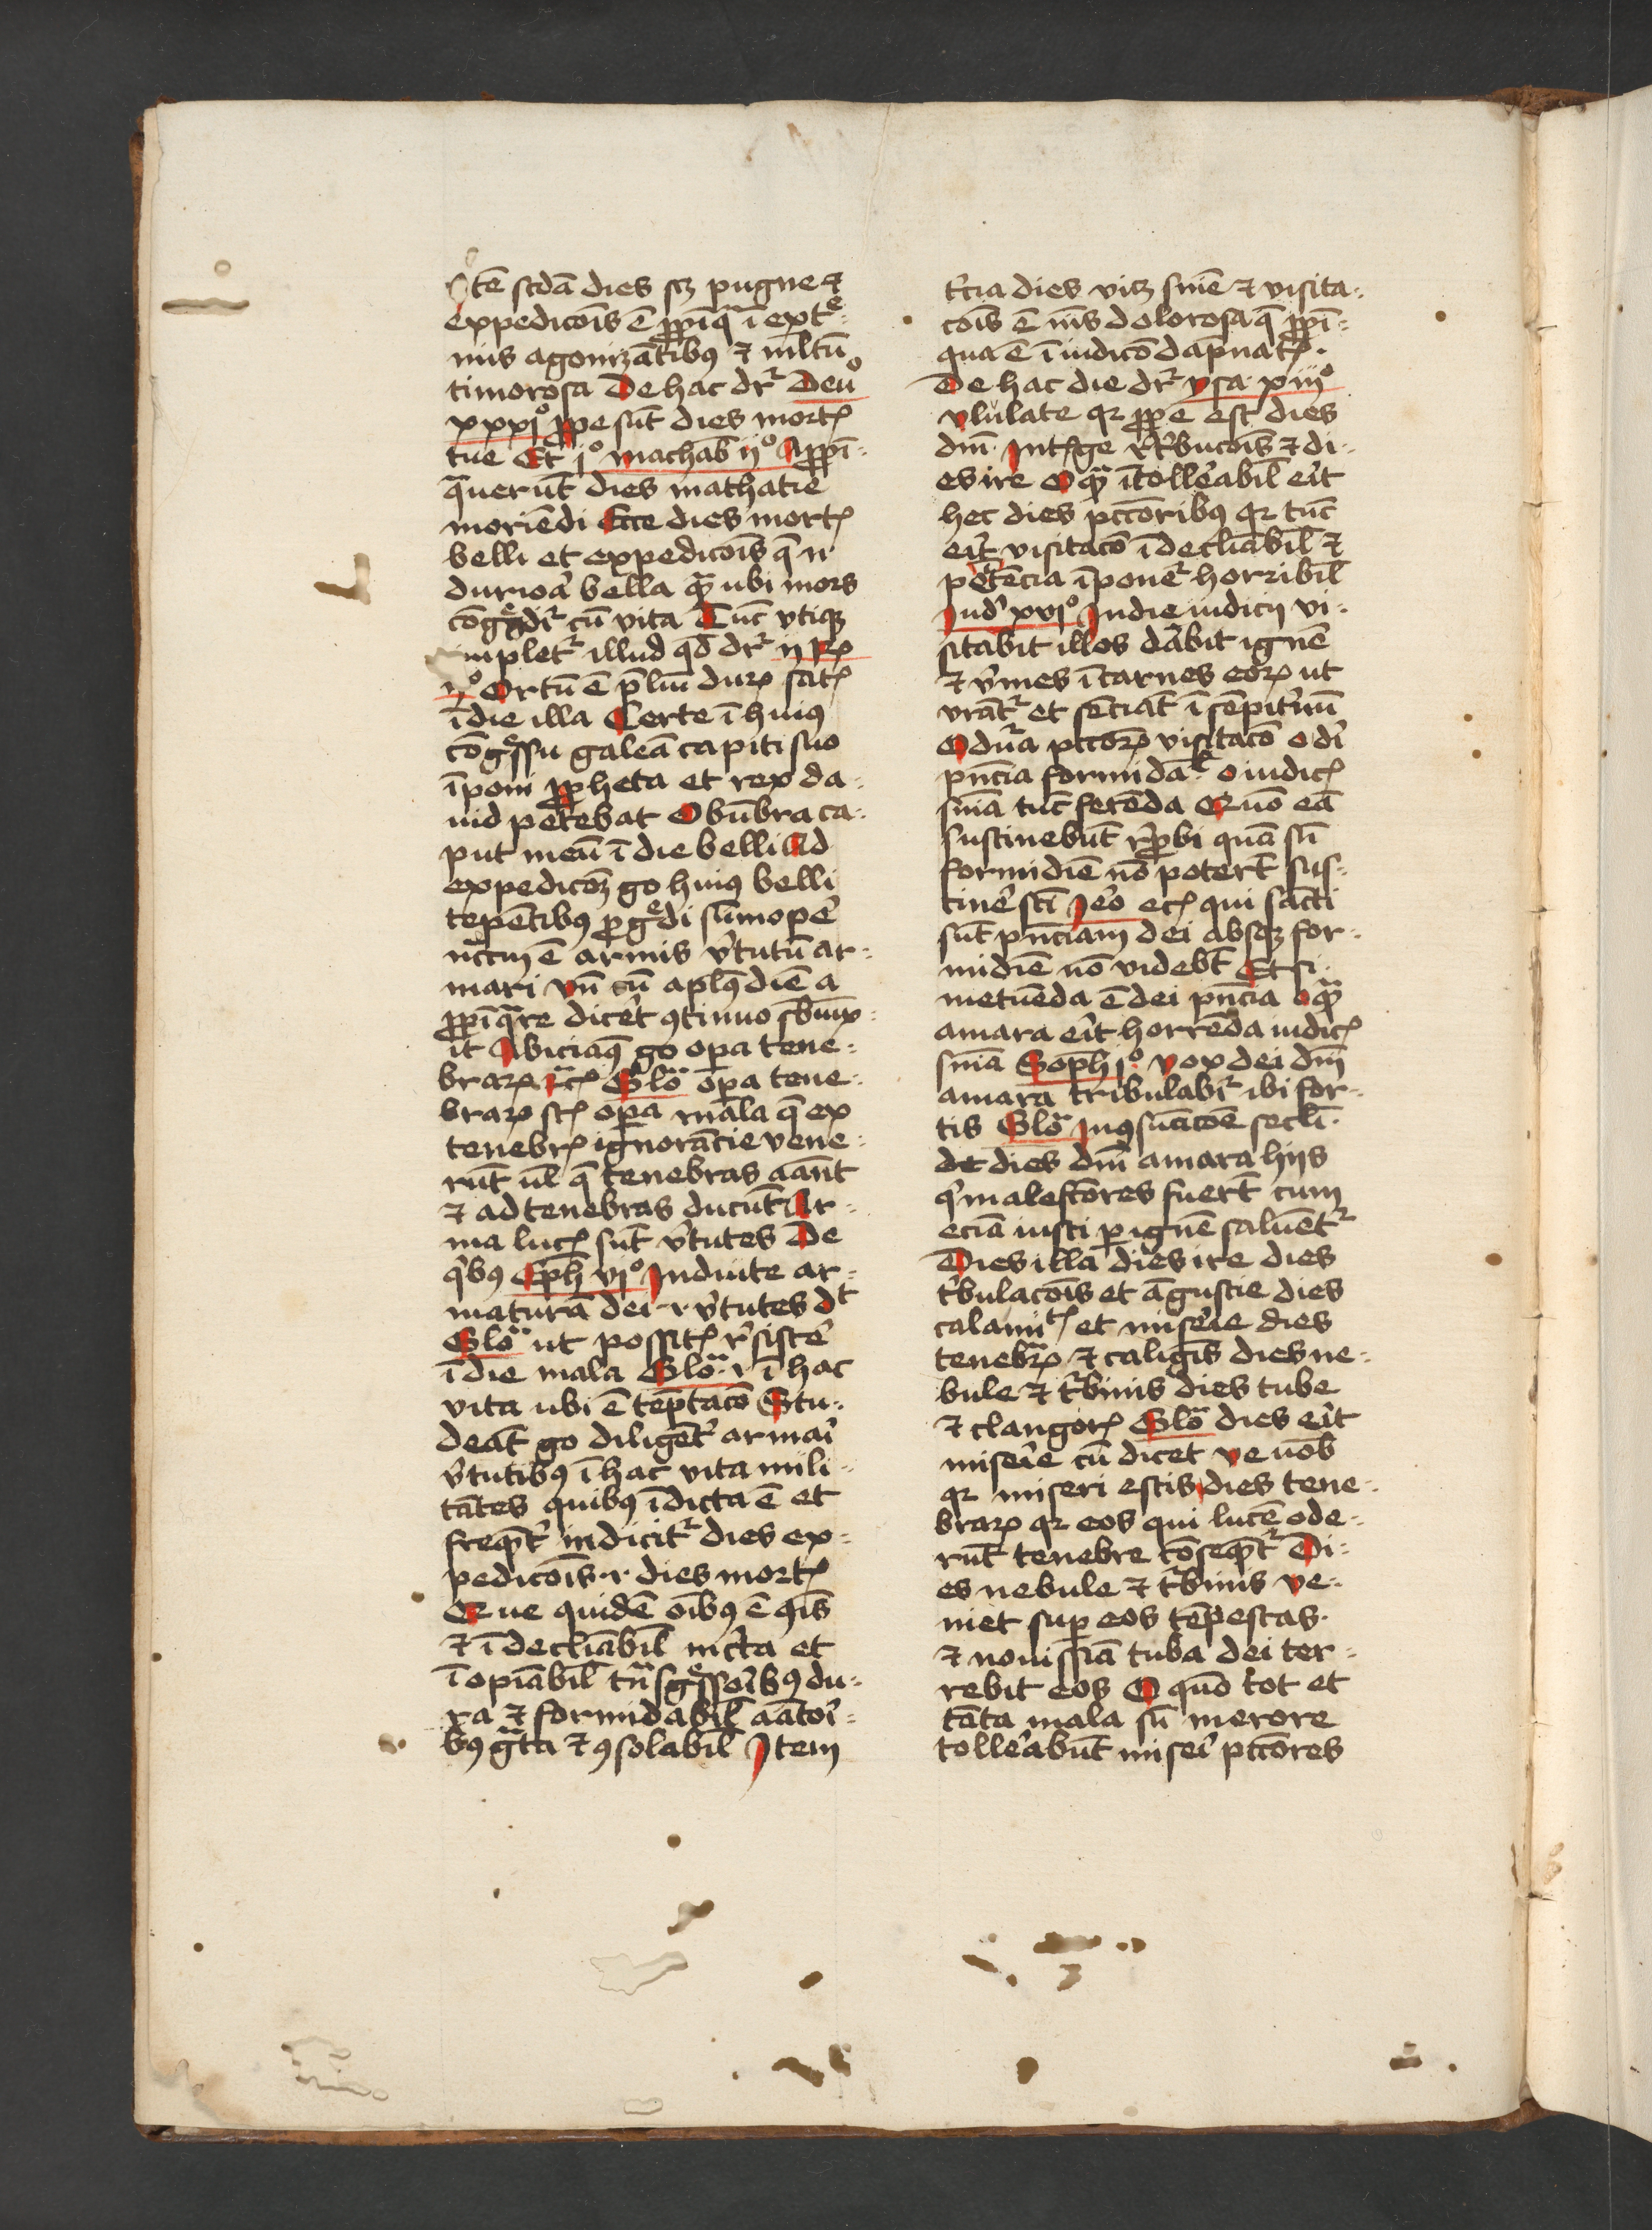 Itē scd̄a dies scꝫ pugne ⁊
expedicoīs ē ꝓpīq̄ ī extᵉ-
mis agonizātibꝰ ⁊ ml̄tū
timorosa De hac dr̄ Deuº
xxxjº ꝓpe sūt dies mortꝭ
tue Et jº machab̄ ijº Appī-
q̄uerūt dies mathatie
moriēdi Ecce dies mortꝭ
belli et expedicoīs q̄ n̄
durioa᷑ bella qᷓꝫ ubi mors
cōgᵉdit᷑ cū vita Tūc vtiqꝫ
implet᷑ illud qd̄ dr̄ ij Rꝭ
ijº Ortū ē p̄liū durꝫ satꝭ
ī die illa Certe ī huiꝰ
cōgᵉssu galeā capiti suo
īponi ꝓpheta et rex da-
uid petebat Obūbra ca-
put meū ī die belli Ad
expedicōꝫ go huiꝰ belli
tepētibꝰ ꝓgᵉdi sūmope᷑
nc̄cm ē armis v᷑tutū ar-
mari vn̄ cū apl̄us diē a
ꝓpīqᷓre dicet ꝯtinuo sb̄iūx-
it Abiciaꝰ go oꝑa tene-
brarꝫ ⁊cꝭ Glōᷓ oꝑa tene-
brarꝫ scꝭ oꝑa mala q̄ ex
tenebrꝭ ignorācie vene-
rūt ul̄ q̄ tenebras aānt
⁊ ad tenebras ducūt Ar-
ma lucꝭ sūt v᷑tutes De
qⁱbꝰ Eph̄ vjº Induite ar-
maturā dei .i. v᷑tutes dᵗ
Glōᷓ ut possitꝭ r᷑siste᷑
ī die mala Glōᷓ .i. ī hac
vita ubi ē tēptacō Stu-
deāt go diligēt᷑ armai᷑
v᷑tutibꝰ ī hac vita mili-
tātes quibꝰ īdicta ē et
freq̄ꝫt᷑ indicit᷑ dies ex-
pedicoīs .i. dies mortꝭ
Que quidē oībꝰ ē ꝯīs
⁊ ī decliābil̄ inc᷑ta et
īopiābil̄ tᷓnsgᵉssoribꝰ du-
ra ⁊ formidabil̄ aātoi᷑-
bꝰ gᷓta ⁊ ꝯsolabil̄ Item
t᷑cia dies vicꝫ sniē ⁊ visita-
cōis ē nīs dolorosa q̄ ꝓpī-
qua ē ī iudicō dāpnatꝭ.
De hac die dr̄ ysa xiijº
vlulate qꝛ ꝓpe est dies
dn̄i Intꝭge r᷑tⁱbucōis ⁊ di-
es ire O qᷓꝫ ītolle᷑abil̄ ei᷑t
hec dies pctōribꝰ qꝛ tūc
ei᷑t visitacō īdecliābil̄ ⁊
petēcia īponet᷑ horribil̄
Iud᷑ xvjº In die iudicij vi-
sitabit illos dabit ignē
⁊ v᷑mes ī carnes eorꝫ ut
vrāt᷑ et sēciāt ī sēpit᷑nū
O du᷑a pctōrꝫ visitacō o di᷑
pn̄cia formidaᵗ o iudicꝭ
sniā tūc ferēda Quō eā
sustinebūt r᷑ꝓbi quā sn̄
formidīē nō poter̄t sus-
tine᷑ sc̄i Ieō ecꝭ qui sācti
sūt pn̄ciam dei absqꝫ for-
midīē nō videb̄t Et si
metuēda ē dei pn̄cia o qᷓꝫ
amara ei᷑t horrēda iudicꝭ
sniā Soph jº vox dei dn̄i
amara tribulabit᷑ ibi for-
tis Glōᷓ In ꝯsūacōe secl̄i
dēt dies dn̄i amara hijs
qⁱ malefc̄ores fuer̄t cum
eciā iusti ꝑ ignē saluēt᷑
Dies illa dies ire dies
tⁱbulacōis et āgustie dies
calamiᵗꝭ et mise᷑ie dies
tenebᷓrꝫ ⁊ caligīs dies ne-
bule ⁊ t᷑binis dies tube
⁊ clangorꝭ Glōᷓ dies ei᷑t
mise᷑ie cū dicet ve uob̄
qꝛ miseri estis dies tene-
brarꝫ qꝛ eos qui lucē ode-
rūt tenebre cōseq̄ꝫt᷑ Di-
es nebule ⁊ t᷑binis ve-
niet suꝑ eos tēpestas
⁊ nouissīa tuba dei ter-
rebit eos O qn̄o tot et
tāta mala sn̄ merore
tolle᷑abūt misei᷑ pctōres